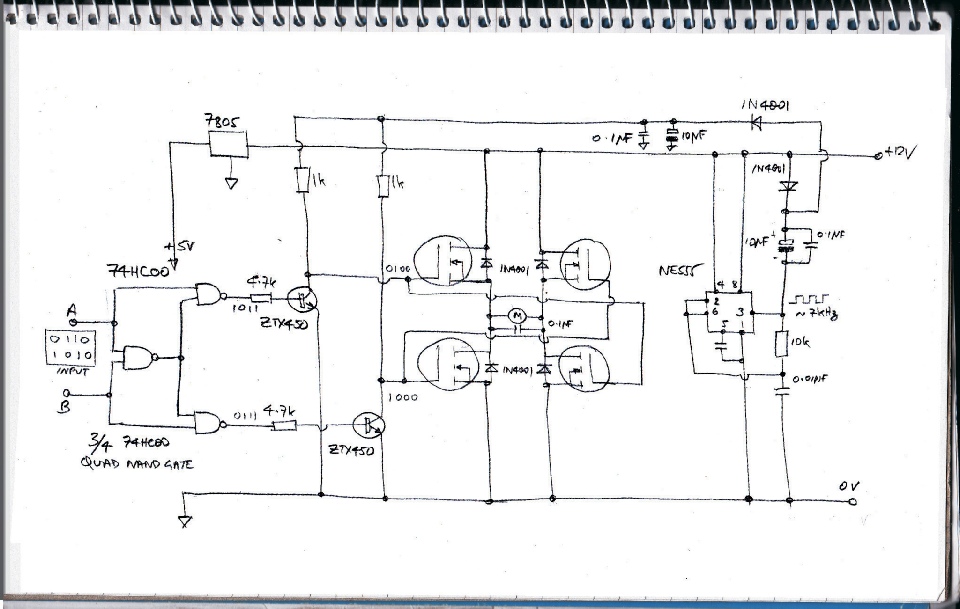 1N4001
7805
0.1µF
10µF
+12V
1k
1k
1N4001
+5V
10µF
+
-
0.1µF
74HC00
4.7k
0100
1N4001
NE555
4 8
2
6 3
5 1
~7kHz
A
1011
ZTX450
M
0.1µF
0110
1010
INPUT
10k
1N4001
0.01µF
B
0111
4.7k
1000
ZTX450
3/4 74HC00
QUAD NAND GATE
0V